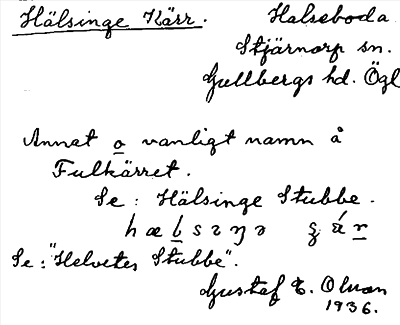 Hälsinge Kärr. Halseboda
Stjärnorp sn.
Gullbergs hd. Ögl
Annat o vanligt namn å
Fulkärret.
Se: Hälsinge Stubbe.
Se: "Helvetes Stubbe".
Gustaf E. Olson
1936.